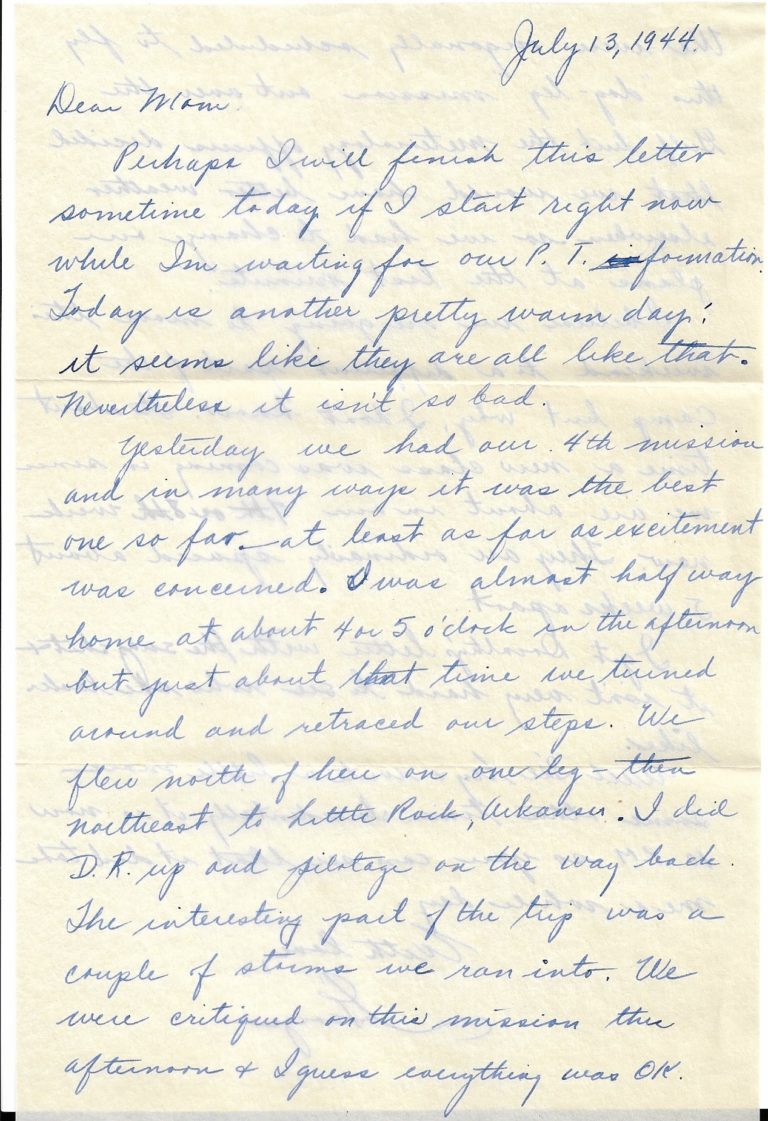 July 13, 1944.
Dear Mom.
Perhaps I will finish this letter
sometime today if I start right now
while I'm waiting for our P. T. formation.
Today is another pretty warm day;
it seems like they are all like that.
Nevertheless it isn't so bad.
Yesterday we had our 4th mission
and in many ways it was the best
one so far - at least as far as excitement
was concerned. I was almost half way
home at about 4 or 5 o'clock in the afternoon
but just about that time we turned
around and retraced our steps. We
flew north of here on one leg - then
northeast to Little Rock, Arkansas. I did
D.R. up and pilotage on the way back.
The interesting part of the trip was a
couple of storms we ran into. We
were critiqued on this mission this
afternoon & I guess everything was OK.